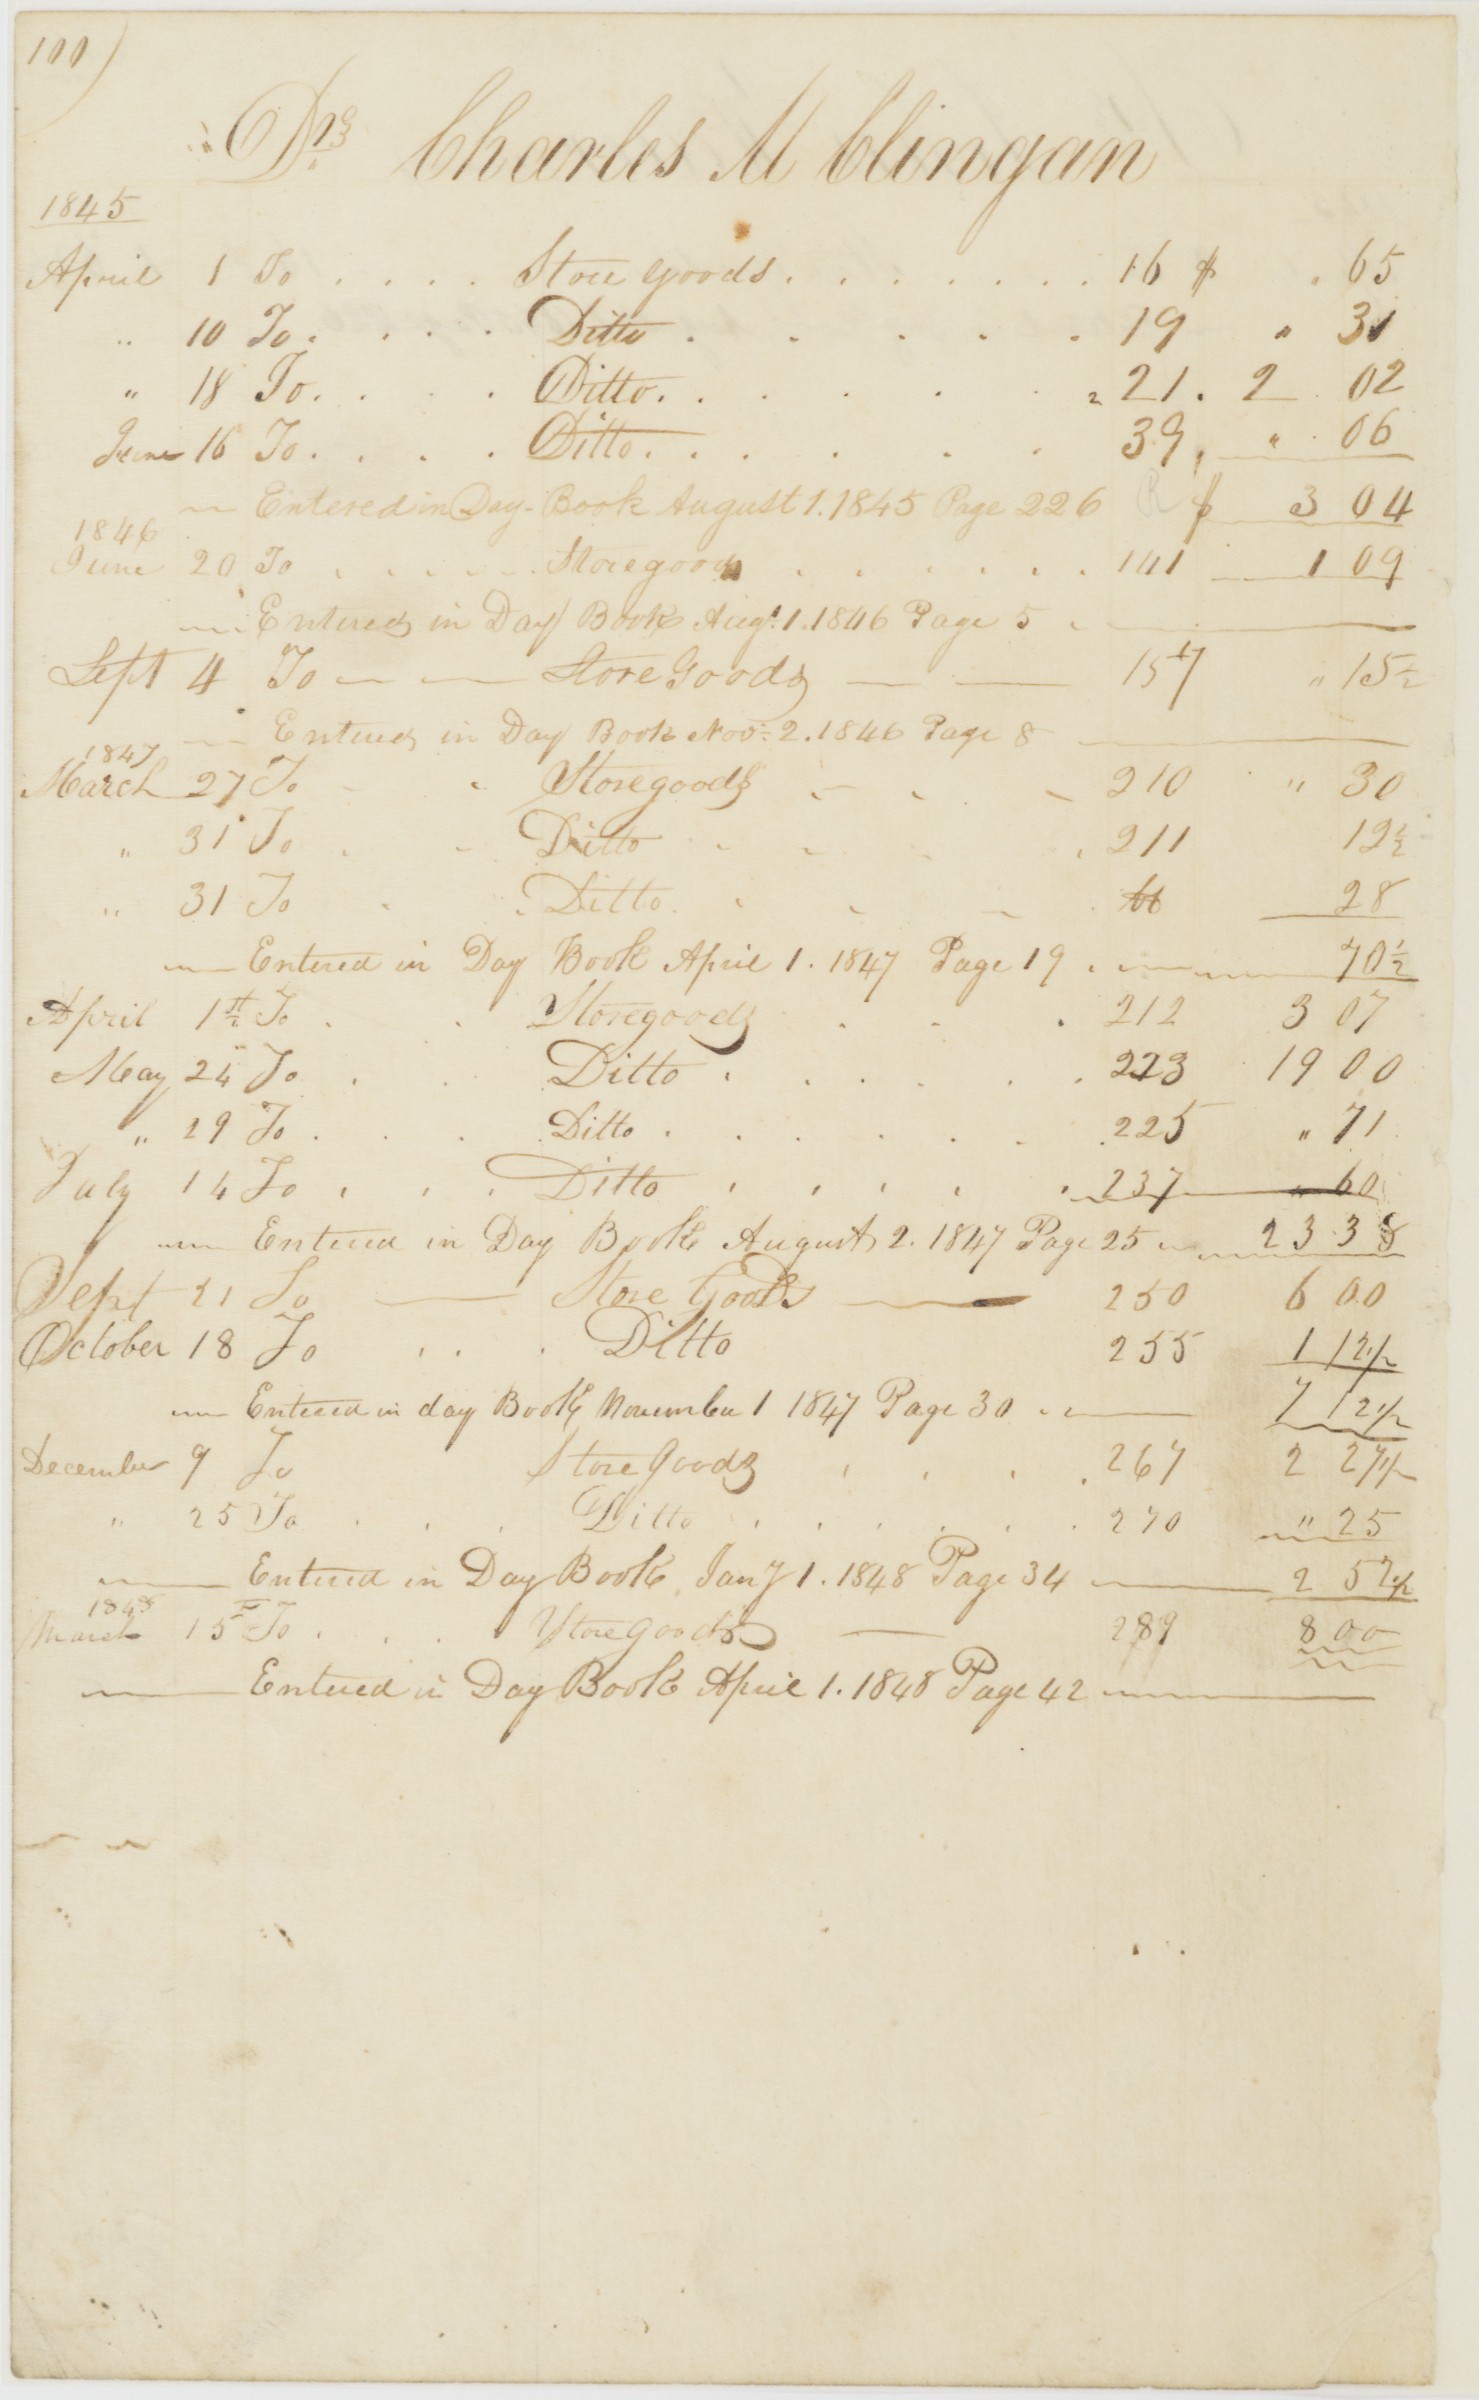 100)
Drs Charles M Clingan
1845
April 1 To . . . . Store goods . . . . . . . 16 $ " 65
" 10 To . . . . Ditto . . . . . 19 " 31
" 18 To . . . . Ditto . . . . . . 21 . 2 02
June 16 To . . . . Ditto . . . . . . 39 , " 06
Entered in Day-Book August 1. 1845 Page 226 $ 3 04
1846
June 20 To . . . . . Storegoods . . . . . . 141 1 09
Entered in Day Book Augt. 1. 1846 Page 5
Sept 4 To — — Store Goods — — 157 " 15½
Entered in Day Book Nov: 2. 1846 Page 8
1847
March 27 To - . Storegoods - . . - 210 " 30
" 31 To . . Ditto . . . . 211 12½
" 31 To . . Ditto . . . . 28
Entered in Day Book April 1. 1847 Page 19 . 70½
April 1st To . . Storegoods . . . 212 3 07
May 24 To . . Ditto . . . . . . 223 19 00
" 29 To . . . Ditto . . . . . . 225 " 71
July 14 To . . . Ditto . . . . . 237 " 60
Entered in Day Book August 2. 1847 Page 25 23 38
Sept 21 To — Store Goods — 250 6 00
October 18 To . . . Ditto 255 1 12½
Entered in day Book November 1 1847 Page 30 7 12½
December 9 To Store Goods . . . . 267 2 27½
" 25 To . . . Ditto . . . . . . 270 " 25
Entered in Day Book Jany 1. 1848 Page 34 2 52½
1848
March 15 To . . . . Storegoods — 289 8 00
Entered in Day Book April 1. 1848 Page 42